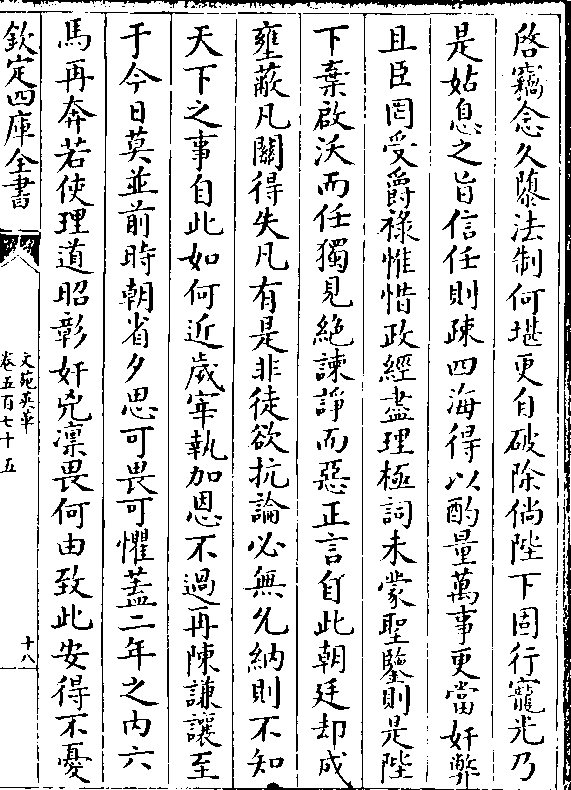 啓竊念久隳法制何堪更自破除倘陛下固行寵光乃
是姑息之旨信任則疎四海得以酌量萬事更當奸弊
且臣罔受爵祿惟惜政經盡理極詞未蒙聖鑒則是陛
下棄啟沃而任獨見絶諫諍而惡正言自此朝廷却成
壅蔽凡關得失凡有是非徒欲抗論必無允納則不知
天下之事自此如何近歲宰執加恩不過再陳謙讓至
于今日莫並前時朝省夕思可畏可懼蓋二年之内六
馬再奔若使理道昭彰奸兇凛畏何由致此安得不憂
欽定四庫全書
文苑英華
卷五百七十五
十八